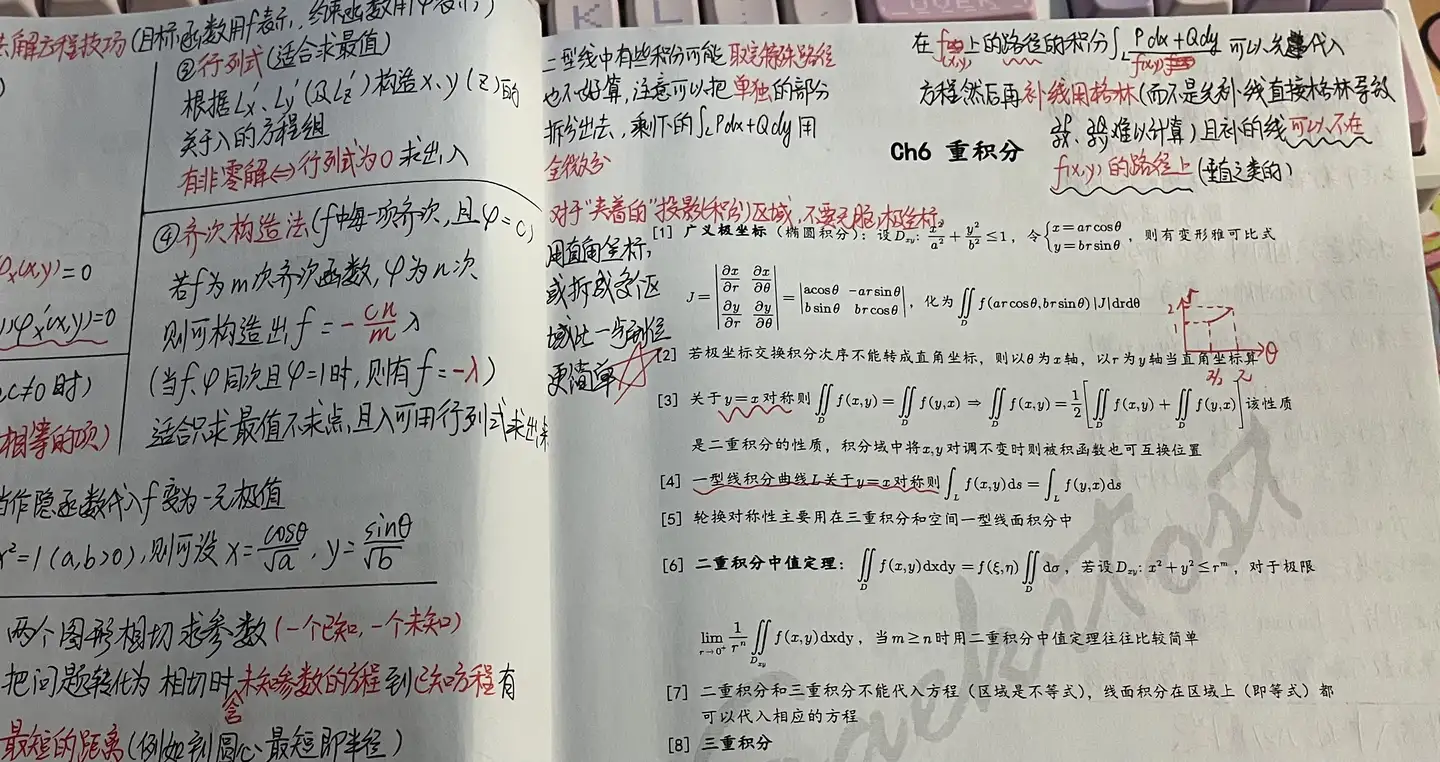 解方程技巧(目标函数用f表示,约束函数用φ表示,)
③行列式(适合求最值)
根据Lx′、Ly′(及Lz′)构造x、y(z)的
关于λ的方程组
有非零解⇔行列式为0 求出λ
④齐次构造法(f中每一项齐次,且φ=c)
若f为m次齐次函数,φ为n次
则可构造出f=-cn/m λ
(当f、φ同次且φ=1时,则有f=-λ)
适合只求最值不求点,且λ可用行列式求出来
φx(x,y)=0
φx′(x,y)=0
c≠0时)
相等的项)
作隐函数代入f变为一元极值
x²=1(a,b>0),则可设x=cosθ/√a,y=sinθ/√b
两个图形相切求参数(一个已知,一个未知)
把问题转化为相切时含未知参数的方程到已知方程有
最短的距离(例如到圆心最短即半径)
二型线中有些积分可能取完特殊路径
也不好算,注意可以把单独的部分
拆分出去,剩下的∫L Pdx+Qdy用
全微分
在f(x,y)上的路径的积分∫L Pdx+Qdy/f(x,y) 可以先代入
方程然后再补线用格林(而不是先补线直接格林导致
难以计算)且补的线可以不在
f(x,y)的路径上(垂直之类的)
Ch6 重积分
对于"夹着的"投影(积分)区域,不要克服极坐标,
用直角坐标,
或拆成多个区
域比一步到位
更简单
[1] 广义极坐标(椭圆积分):设Dxy: x²/a²+y²/b²≤1,令{x=arcosθ y=brsinθ,则有变形雅可比式
J=|∂x/∂r ∂x/∂θ; ∂y/∂r ∂y/∂θ|=|acosθ -arsinθ; bsinθ brcosθ|,化为∬D f(arcosθ,brsinθ)|J|drdθ
2 r θ
[2] 若极坐标交换积分次序不能转成直角坐标,则以θ为x轴,以r为y轴当直角坐标算
[3] 关于y=x对称则∬D f(x,y)=∬D f(y,x)⇒∬D f(x,y)=1/2[∬D f(x,y)+∬D f(y,x)]该性质
是二重积分的性质,积分域中将x,y对调不变时则被积函数也可互换位置
[4] 一型线积分曲线L关于y=x对称则∫L f(x,y)ds=∫L f(y,x)ds
[5] 轮换对称性主要用在三重积分和空间一型线面积分中
[6] 二重积分中值定理:∬D f(x,y)dxdy=f(ξ,η)∬D dσ,若设Dxy: x²+y²≤r^m,对于极限
lim r→0⁺ 1/r^n ∬Dxy f(x,y)dxdy,当m≥n时用二重积分中值定理往往比较简单
[7] 二重积分和三重积分不能代入方程(区域是不等式),线面积分在区域上(即等式)都
可以代入相应的方程
[8] 三重积分